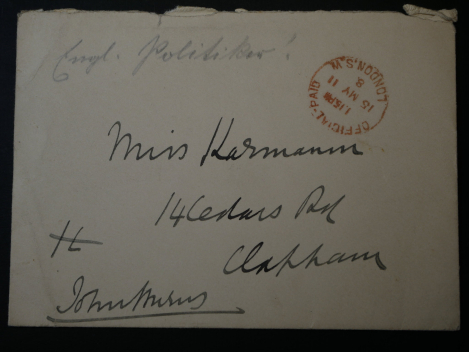 Engl. Politiker!
OFFICIAL PAID
LONDON.S.W
1.15 PM
15 MY 11
8
Miss Karmann
14 Cedars Rd
Clapham
John Burns